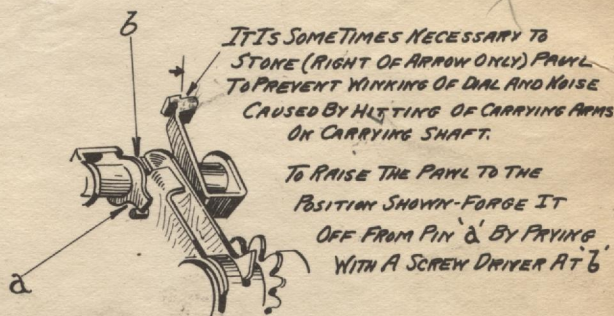 b
IT IS SOMETIMES NECESSARY TO
STONE (RIGHT OF ARROW ONLY) PAWL
TO PREVENT WINKING OF DIAL AND NOISE
CAUSED BY HITTING OF CARRYING ARMS
ON CARRYING SHAFT.
TO RAISE THE PAWL TO THE
POSITION SHOWN-FORGE IT
OFF FROM PIN 'a' BY PRYING
WITH A SCREW DRIVER AT 'b'
a